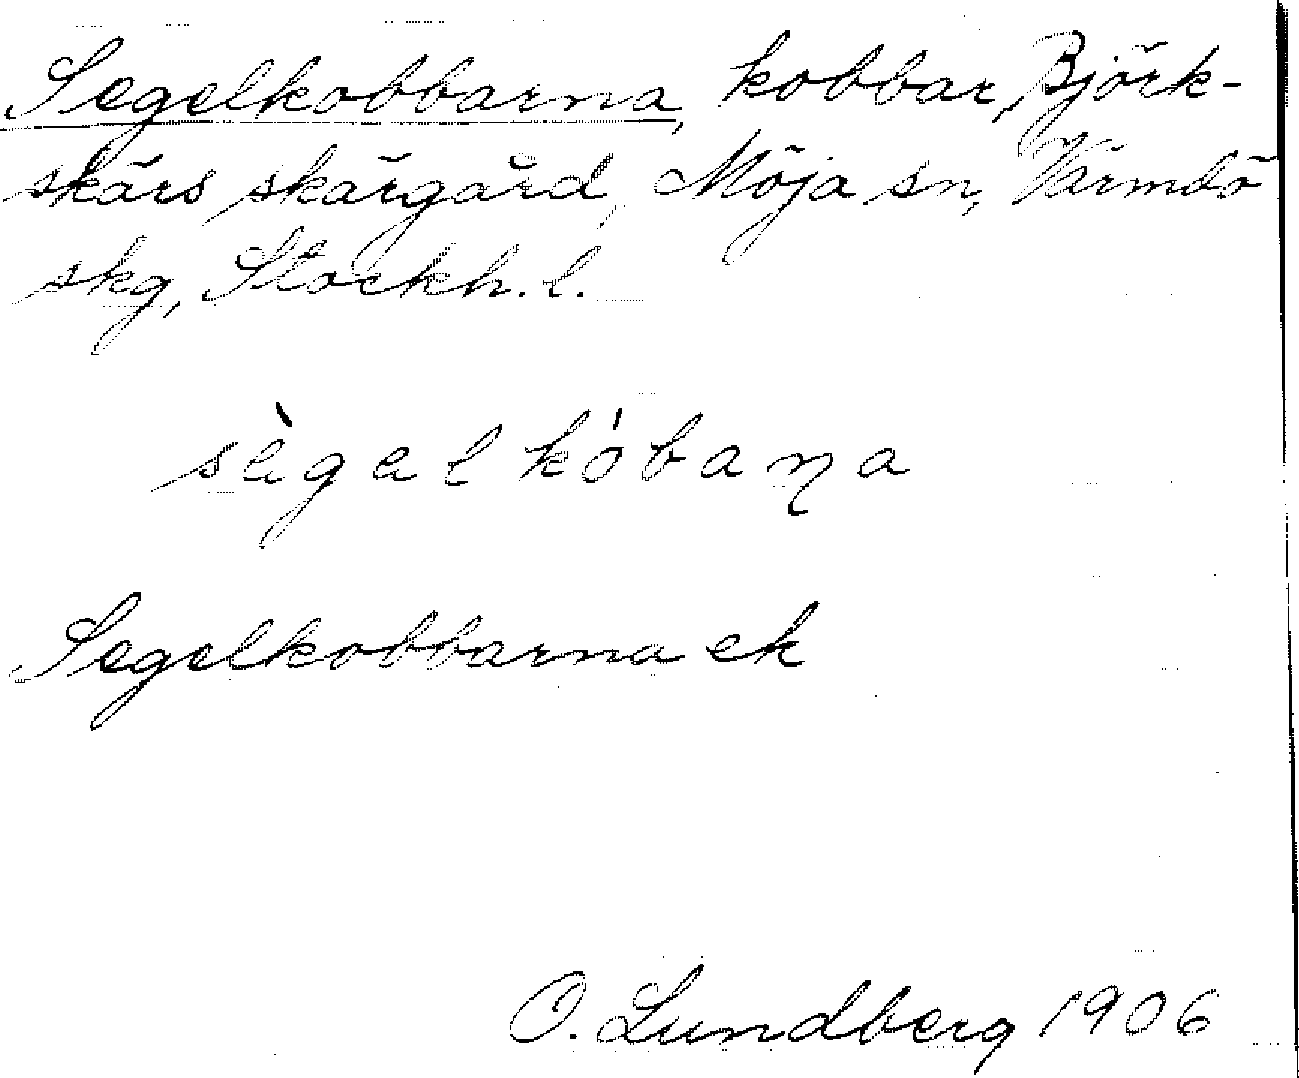 Segelkobbarna, kobbar, Björk-
skärs skärgård, Möja sn, Värmdö
skg, Stockh. l.
sègelkóbaɳa
Segelkobbarna ek
O. Lundberg 1906